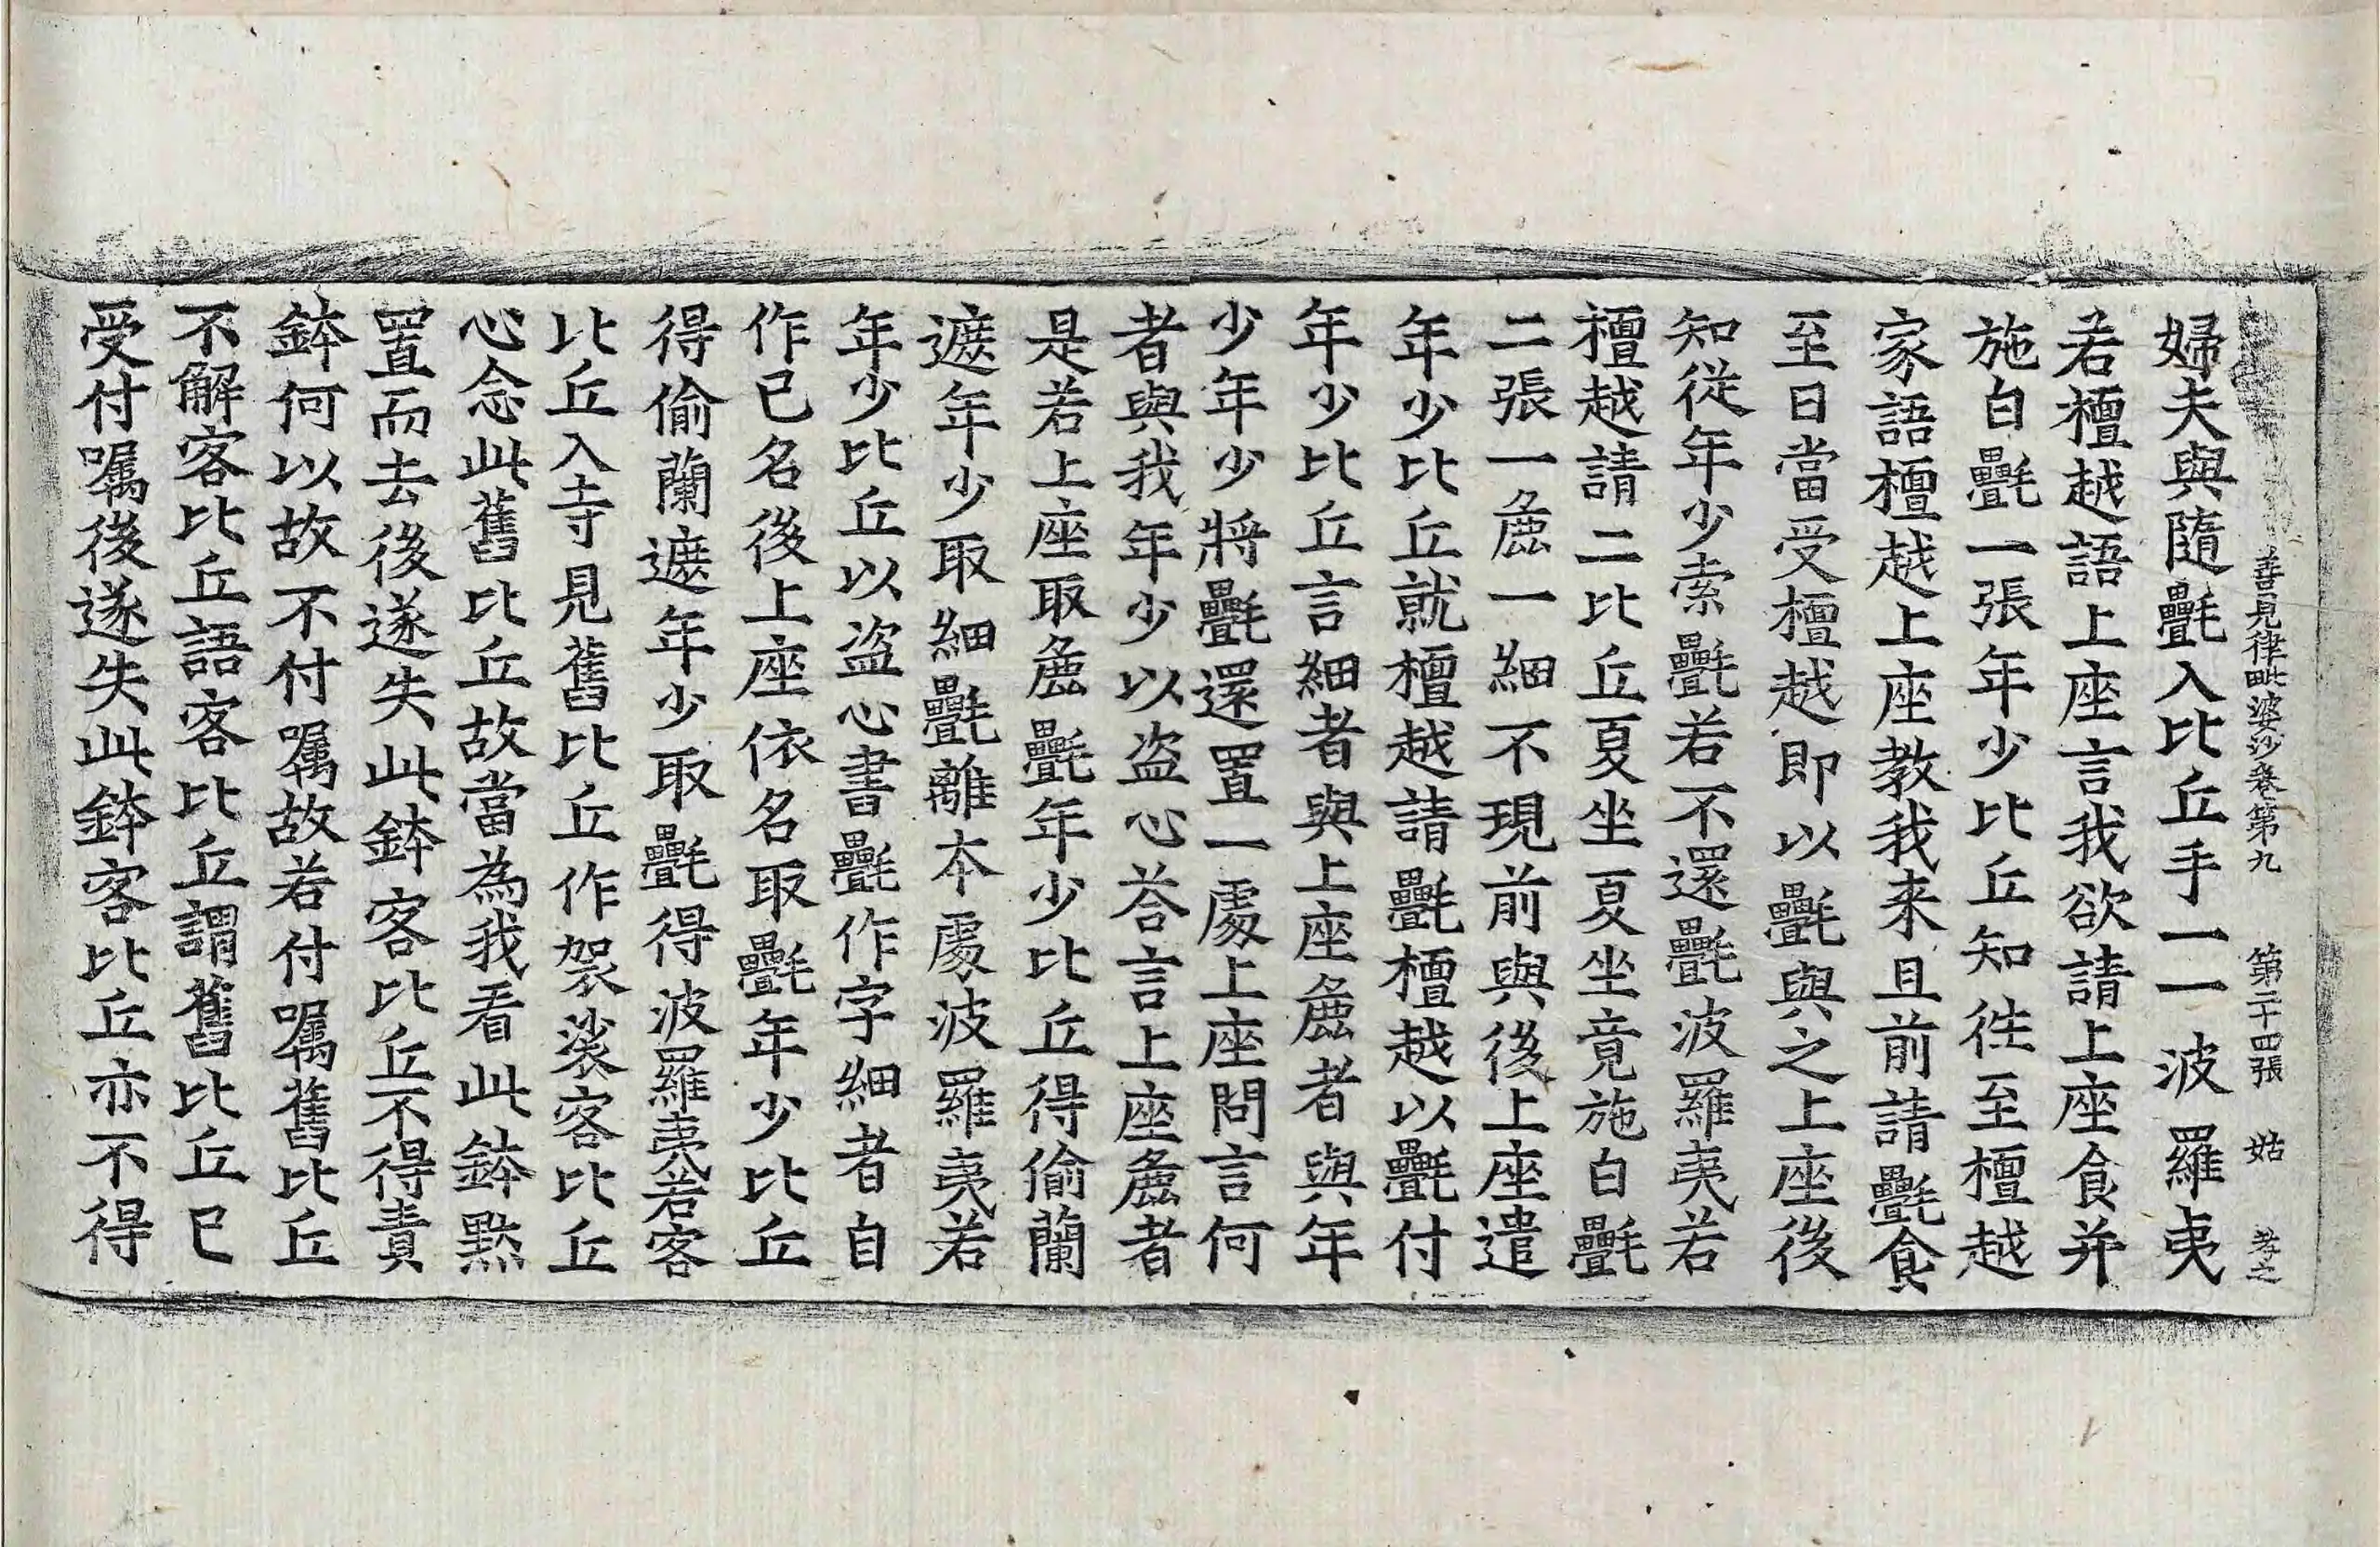 善見律毗婆沙卷第九　第二十四張　姑
婦夫與隨㲲入比丘手一一波羅夷
若檀越語上座言我欲請上座食并
施白㲲一張年少比丘知徃至檀越
家語檀越上座教我来且前請㲲食
至日當受檀越即以㲲與之上座後
知從年少索㲲若不還㲲波羅夷若
檀越請二比丘夏坐夏坐竟施白㲲
二張一麁一細不現前與後上座遣
年少比丘就檀越請㲲檀越以㲲付
年少比丘言細者與上座麁者與年
少年少將㲲還置一處上座問言何
者與我年少以盗心荅言上座麁者
是若上座取麁㲲年少比丘得偷蘭
遮年少取細㲲離本處波羅夷若
年少比丘以盗心書㲲作字細者自
作已名後上座依名取㲲年少比丘
得偷蘭遮年少取㲲得波羅夷若客
比丘入寺見舊比丘作袈裟客比丘
心念此舊比丘故當為我看此鉢黙
置而去後遂失此鉢客比丘不得責
鉢何以故不付嘱故若付嘱舊比丘
不解客比丘語客比丘謂舊比丘已
受付嘱後遂失此鉢客比丘亦不得